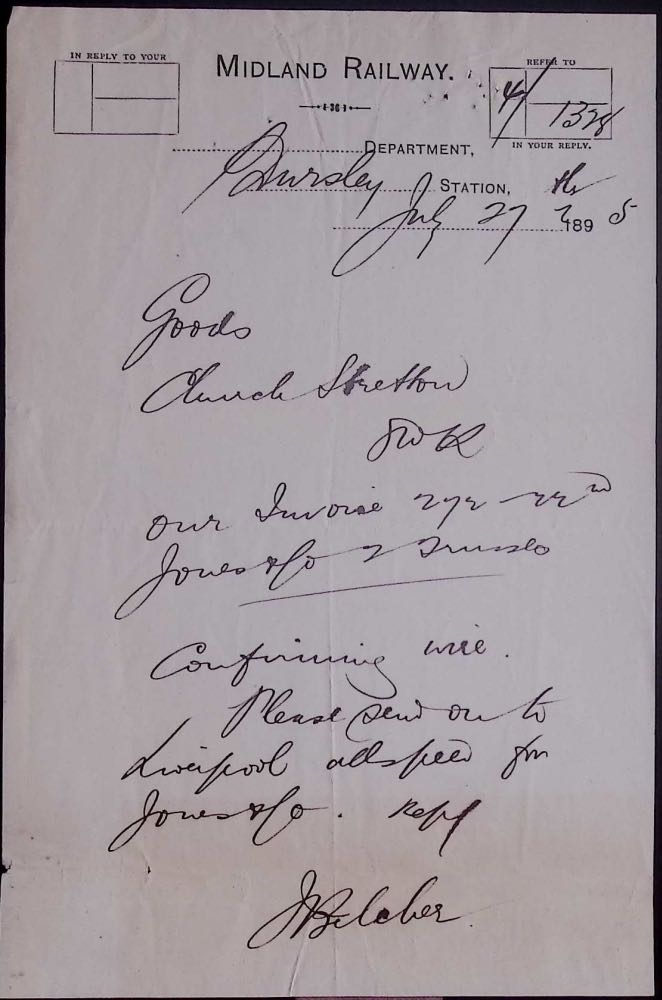 IN REPLY TO YOUR
MIDLAND RAILWAY.
REFER TO
4/1328
IN YOUR REPLY.
DEPARTMENT,
Dursley STATION,
July 27 1895
Goods
Church Stretton
our Invoice 292 22nd
Jones & Co 2 Trusses
Confirming wire.
Please send on to
Liverpool all speed for
Jones & Co. Reply
J Belcher